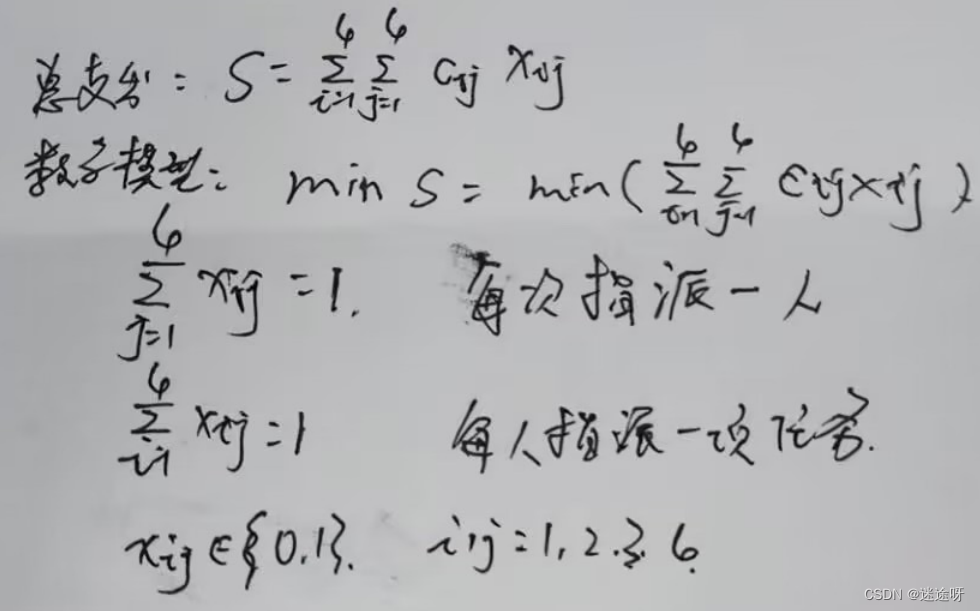 总支出: S = ∑_{i=1}^{4} ∑_{j=1}^{4} c_{ij} x_{ij}
数学模型: min S = min( ∑_{i=1}^{4} ∑_{j=1}^{4} c_{ij} x_{ij} )
∑_{j=1}^{4} x_{ij} = 1. 每次指派一人
∑_{i=1}^{4} x_{ij} = 1 每人指派一项任务.
x_{ij} ∈ {0,1}. i,j = 1, 2, 3, 4.
CSDN @迷途呀